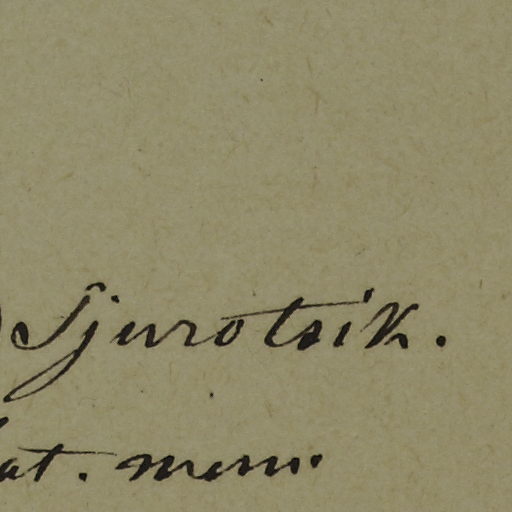 Sjurotsik.
at. mem.